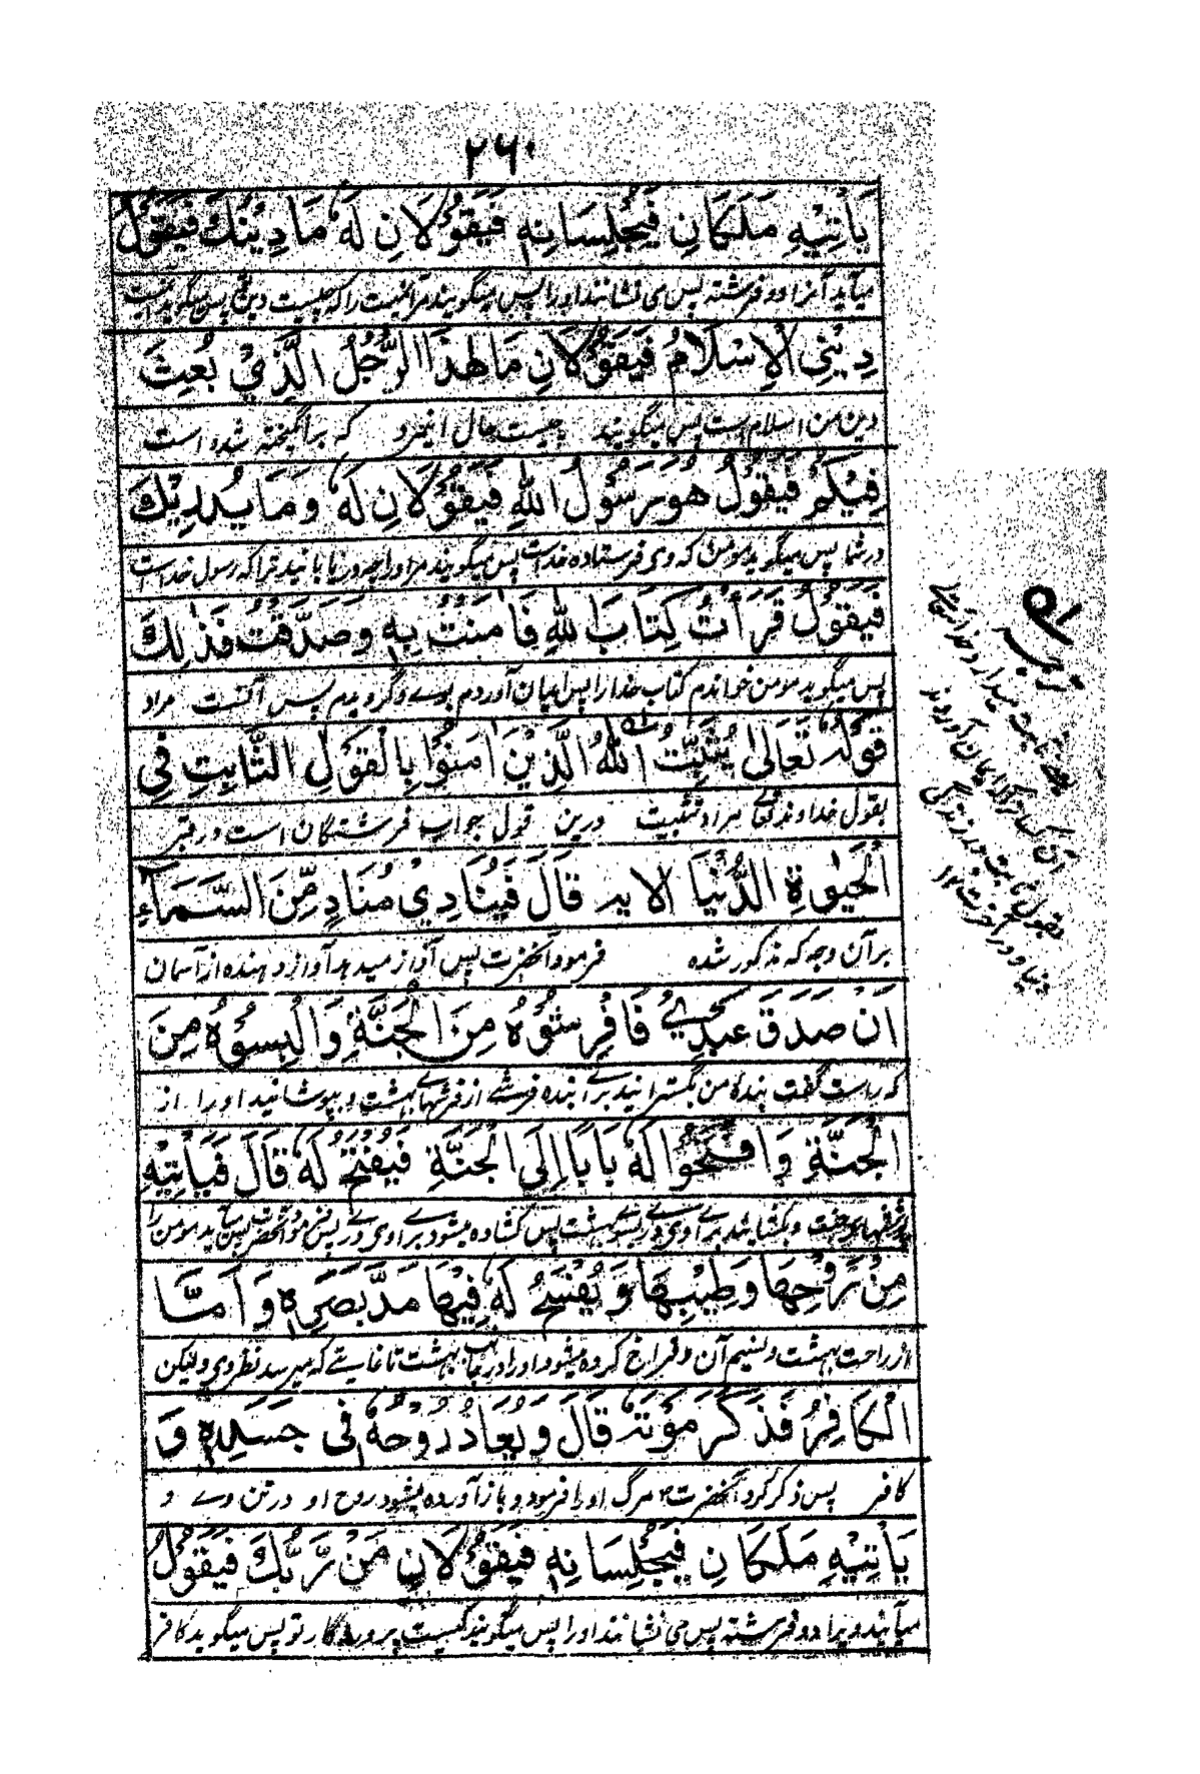 ۲۶۰
يَأْتِيْهِ مَلَكَانِ فَيُجْلِسَانِهٖ فَيَقُوْلَانِ لَهٗ مَا دِيْنُكَ فَيَقُوْلُ
میآید آنرا دو فرشته پس می نشانند اورا پس میگویند مرآن میت را که چیست دین تو پس میگوید میت
دِيْنِيَ الْاِسْلَامُ فَيَقُوْلَانِ مَا هٰذَا الرَّجُلُ الَّذِيْ بُعِثَ
دین من اسلام است پس میگویند چیست حال اینمرد که برانگیخته شده است
فِيْكُمْ فَيَقُوْلُ هُوَ رَسُوْلُ اللّٰهِ فَيَقُوْلَانِ لَهٗ وَمَا يُدْرِيْكَ
در شما پس میگوید مومن که وی فرستاده خداست پس میگویند مر اورا چه دریابانید ترا که رسول خداست
فَيَقُوْلُ قَرَأْتُ كِتَابَ اللّٰهِ فَاٰمَنْتُ بِهٖ وَصَدَّقْتُ فَذٰلِكَ
پس میگوید مومن خواندم کتاب خدا را پس ایمان آوردم بوے و گرویدم پس آنست مراد
قَوْلُهٗ تَعَالٰى يُثَبِّتُ اللّٰهُ الَّذِيْنَ اٰمَنُوْا بِالْقَوْلِ الثَّابِتِ فِي
بقول خداوند تعالی مراد تثبیت درین قول جواب فرشتگان است در قبر
الْحَيٰوةِ الدُّنْيَا الاية قَالَ فَيُنَادِيْ مُنَادٍ مِّنَ السَّمَآءِ
برآن وجه که مذکور شده فرمود آنحضرت پس آواز میدهد آواز دهنده از آسمان
اَنْ صَدَقَ عَبْدِيْ فَافْرِشُوْهُ مِنَ الْجَنَّةِ وَالْبِسُوْهُ مِنَ
که راست گفت بنده من بگسترانید برای بنده فرشے از فرشهاے بهشت و بپوشانید اورا از
الْجَنَّةِ وَافْتَحُوْا لَهٗ بَابًا اِلَى الْجَنَّةِ فَيُفْتَحُ لَهٗ قَالَ فَيَأْتِيْهِ
جنت و بکشایند براے وی درے بسوے بهشت پس کشاده میشود براے وی درے پس فرمود آنحضرت پس می آید مومن را
مِنْ رَّوْحِهَا وَطِيْبِهَا وَيُفْسَحُ لَهٗ فِيْهَا مَدَّ بَصَرِهٖ وَاَمَّا
از راحت بهشت و نسیم آن و فراخ کرده میشود اورا در بهشت تا غایتے که میرسد نظر وی و لیکن
الْكَافِرُ فَذَكَرَ مَوْتَهٗ قَالَ وَيُعَادُ رُوْحُهٗ فِيْ جَسَدِهٖ وَ
کافر پس ذکر کرد آنحضرت مرگ اورا فرمود و باز آورده میشود روح او در تن وے و
يَأْتِيْهِ مَلَكَانِ فَيُجْلِسَانِهٖ فَيَقُوْلَانِ مَنْ رَّبُّكَ فَيَقُوْلُ
میآیند ویرا دو فرشته پس می نشانند اورا پس میگویند کیست پروردگار تو پس میگوید کافر
ثابت میدارد خدائے تعالے
آن کسان را که ایمان آوردند
بقول ثابت در زندگی
دنیا و در آخرت ۱۲